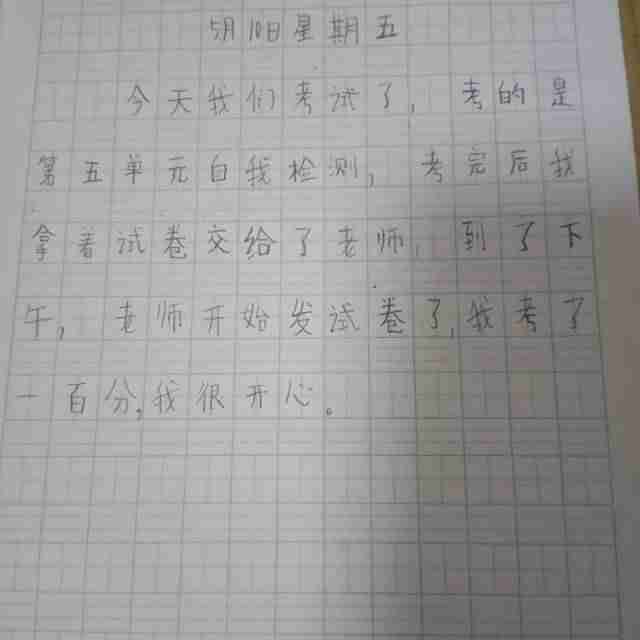 5月10日星期五
今天我们考试了，考的是
第五单元自我检测，考完后我
拿着试卷交给了老师，到了下
午，老师开始发试卷了，我考了
一百分，我很开心。